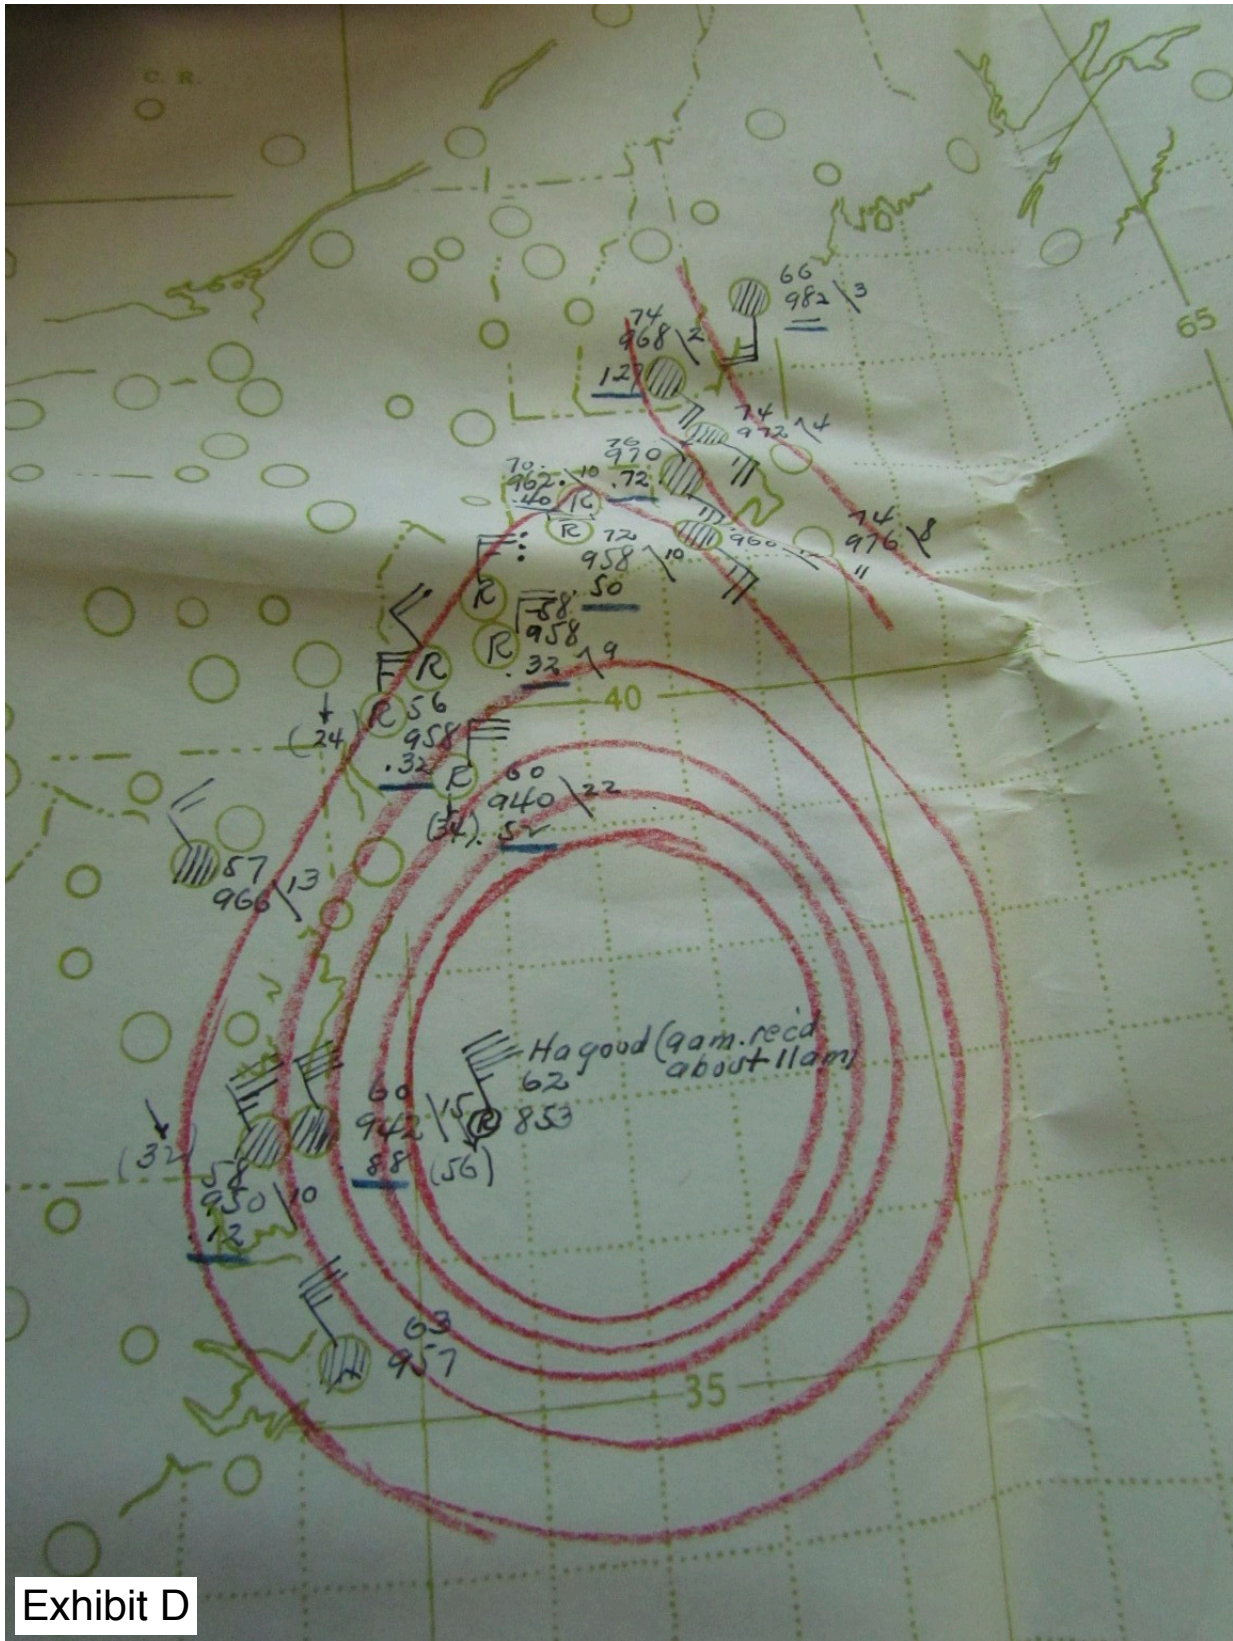 C. R.
65
66
982 \3
74
968 \2
.127
74
972 4
76
970
.72
70
962 10
.40 R
R
72
958 \10
.50
960
74
976 \8
R
58
958
R
.32 9
R
40
R 56
958
.32
(24
R 60
940 \22
(34) .52
57
966 \13
Hagood (9am. rec'd
about 11am)
62
R 853
(56)
60
942 \15
.88
(32)
58
950 \10
.12
63
957
35
Exhibit D